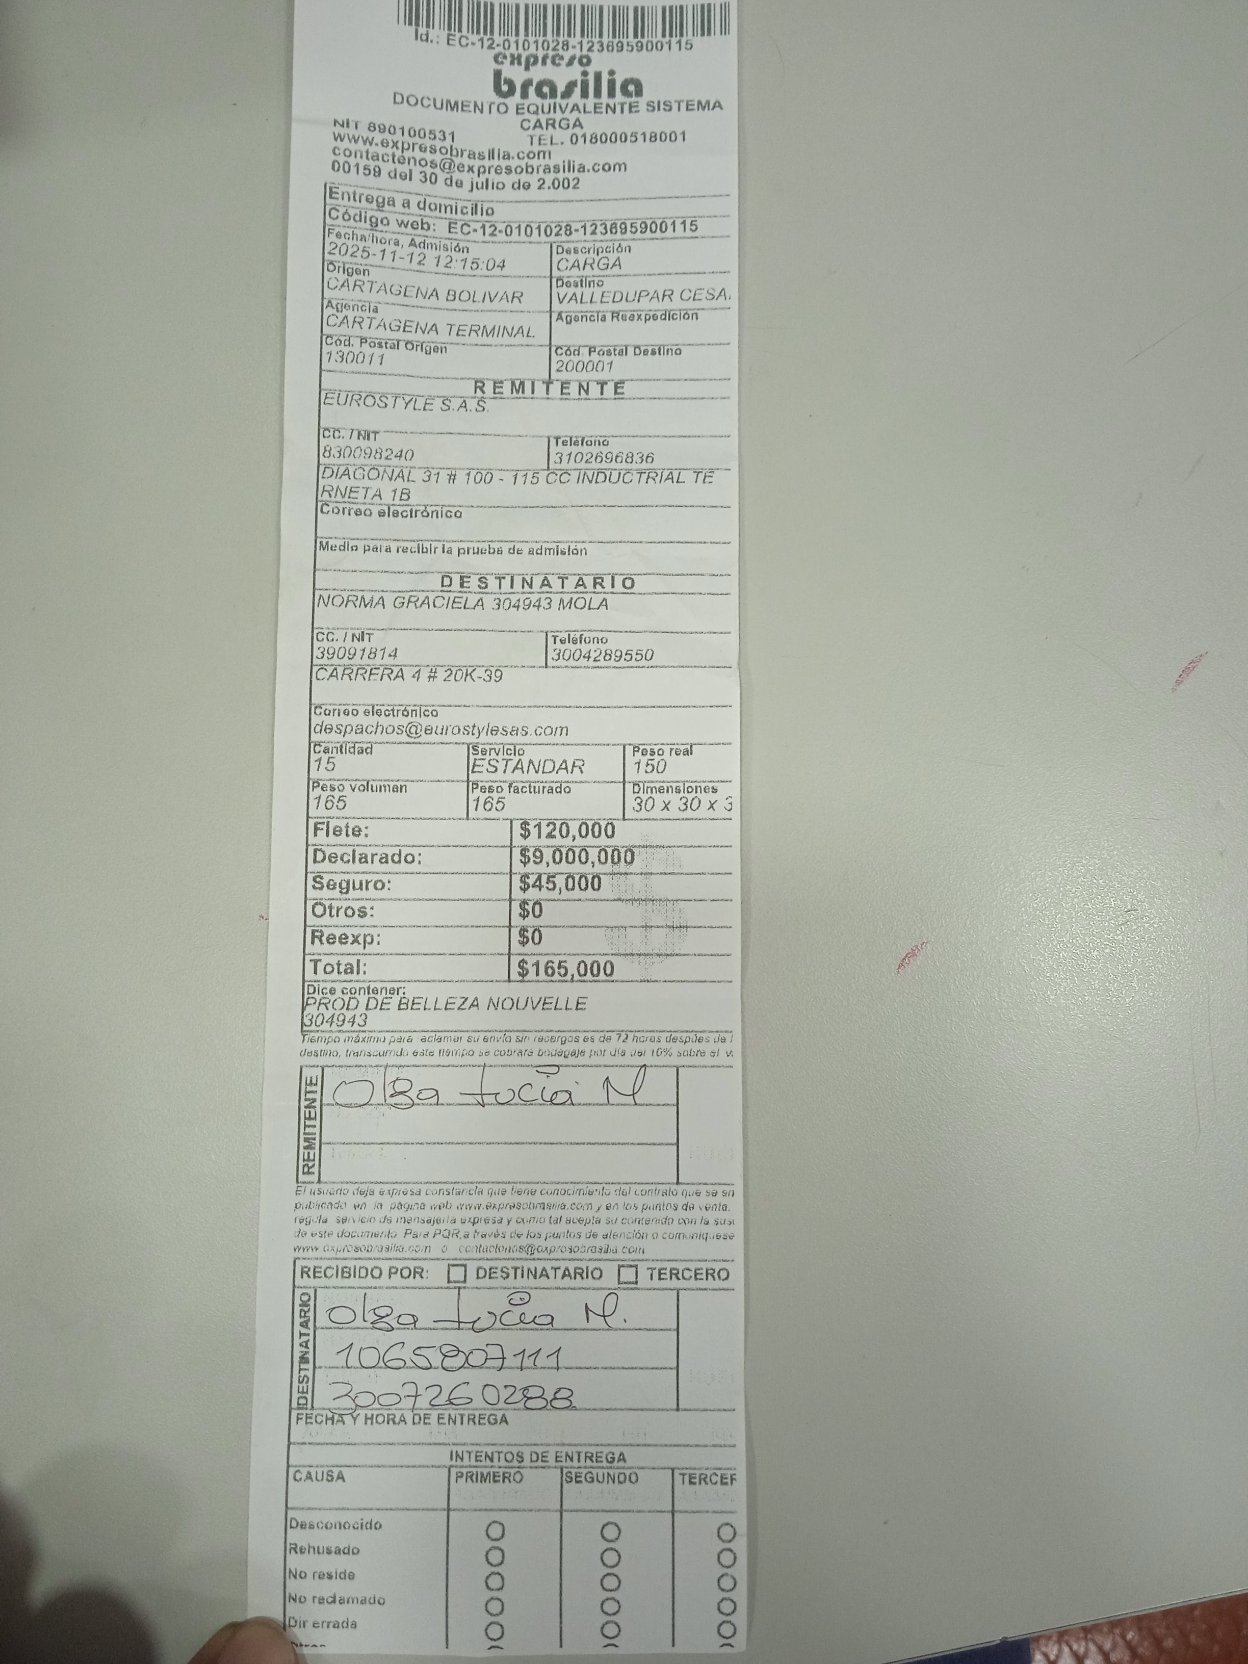 Id.: EC-12-0101028-123695900115
expreso
brasilia
DOCUMENTO EQUIVALENTE SISTEMA
CARGA
NIT 890100531 TEL. 018000518001
www.expresobrasilia.com
contactenos@expresobrasilia.com
00159 del 30 de julio de 2.002
Entrega a domicilio
Código web: EC-12-0101028-123695900115
Fecha/hora, Admisión Descripción
2025-11-12 12:15:04 CARGA
Origen Destino
CARTAGENA BOLIVAR VALLEDUPAR CESA
Agencia Agencia Reexpedición
CARTAGENA TERMINAL
Cód. Postal Origen Cód. Postal Destino
130011 200001
REMITENTE
EUROSTYLE S.A.S.
CC. / NIT Teléfono
830098240 3102696836
DIAGONAL 31 # 100 - 115 CC INDUCTRIAL TE
RNETA 1B
Correo electrónico
Medio para recibir la prueba de admisión
DESTINATARIO
NORMA GRACIELA 304943 MOLA
CC. / NIT Teléfono
39091814 3004289550
CARRERA 4 # 20K-39
Correo electrónico
despachos@eurostylesas.com
Cantidad Servicio Peso real
15 ESTANDAR 150
Peso volumen Peso facturado Dimensiones
165 165 30 x 30 x 3
Flete: $120,000
Declarado: $9,000,000
Seguro: $45,000
Otros: $0
Reexp: $0
Total: $165,000
Dice contener:
PROD DE BELLEZA NOUVELLE
304943
Tiempo máximo para reclamar su envío sin recargos es de 72 horas despúes de
destino, transcurrido este tiempo se cobrará bodegaje por día del 10% sobre el v
REMITENTE
Olga Lucia M
El usuario deja expresa constancia que tiene conocimiento del contrato que se en
publicado en la pagina web www.expresobrasilia.com y en los puntos de venta.
regula servicio de mensajería expresa y como tal acepta su contenido con la sus
de este documento. Para PQR,a través de los puntos de atención o comuníquese
www.expresobrasilia.com o contactenos@expresobrasilia.com
RECIBIDO POR: DESTINATARIO TERCERO
DESTINATARIO
Olga Lucia M.
1065807111
3007260288
FECHA Y HORA DE ENTREGA
INTENTOS DE ENTREGA
CAUSA PRIMERO SEGUNDO TERCER
Desconocido
Rehusado
No reside
No reclamado
Dir errada